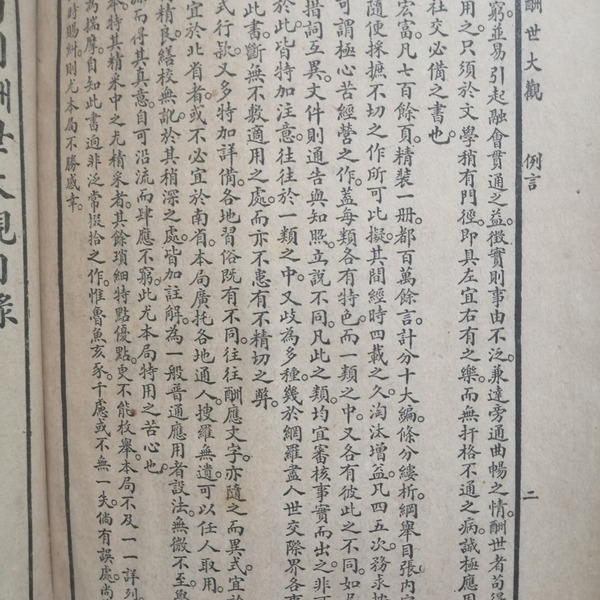 酬世大觀 例言 二
窮並易引起融會貫通之益徵實則事由不泛兼達旁通曲暢之情酬世者苟得
用之只須於文學稍有門徑即具左宜右有之樂而無扞格不通之病誠極應
社交必備之書也
宏富凡七百餘頁精裝一册都百萬餘言計分十大編條分縷析綱舉目張內
隨便採摭不切之作所可比擬其間經時四載之久淘汰增益凡四五次務求
可謂極心苦經營之作蓋每類各有特色而一類之中又各有彼此之不同如
措詞互異文件則通告與知照立說不同凡此之類均宜審核事實而出之非
於此皆特加注意往往於一類之中又歧為多種幾於網羅盡人世交際界各
此書斷無不敷適用之處而亦不患有不精切之弊
式行款又多特加詳備各地習俗既有不同往往酬應文字亦隨之而異式宜於
宜於北省者或不必宜於南省本局廣托各地通人搜羅無遺可以任人取用
精良繕校無訛於其稍深之處皆加註解為一般普通應用者設法無微不至
而得其真意自可沿流而肆應不窮此尤本局特用之苦心也
特其精采中之尤精采者其餘瑣細特點優點更不能枚舉本局不及一一詳列
為揣摩自知此書迥非泛常掇拾之作惟魯魚亥豕千慮或不無一失倘有誤處尚
賜糾則尤本局不勝感幸
酬世大觀目錄